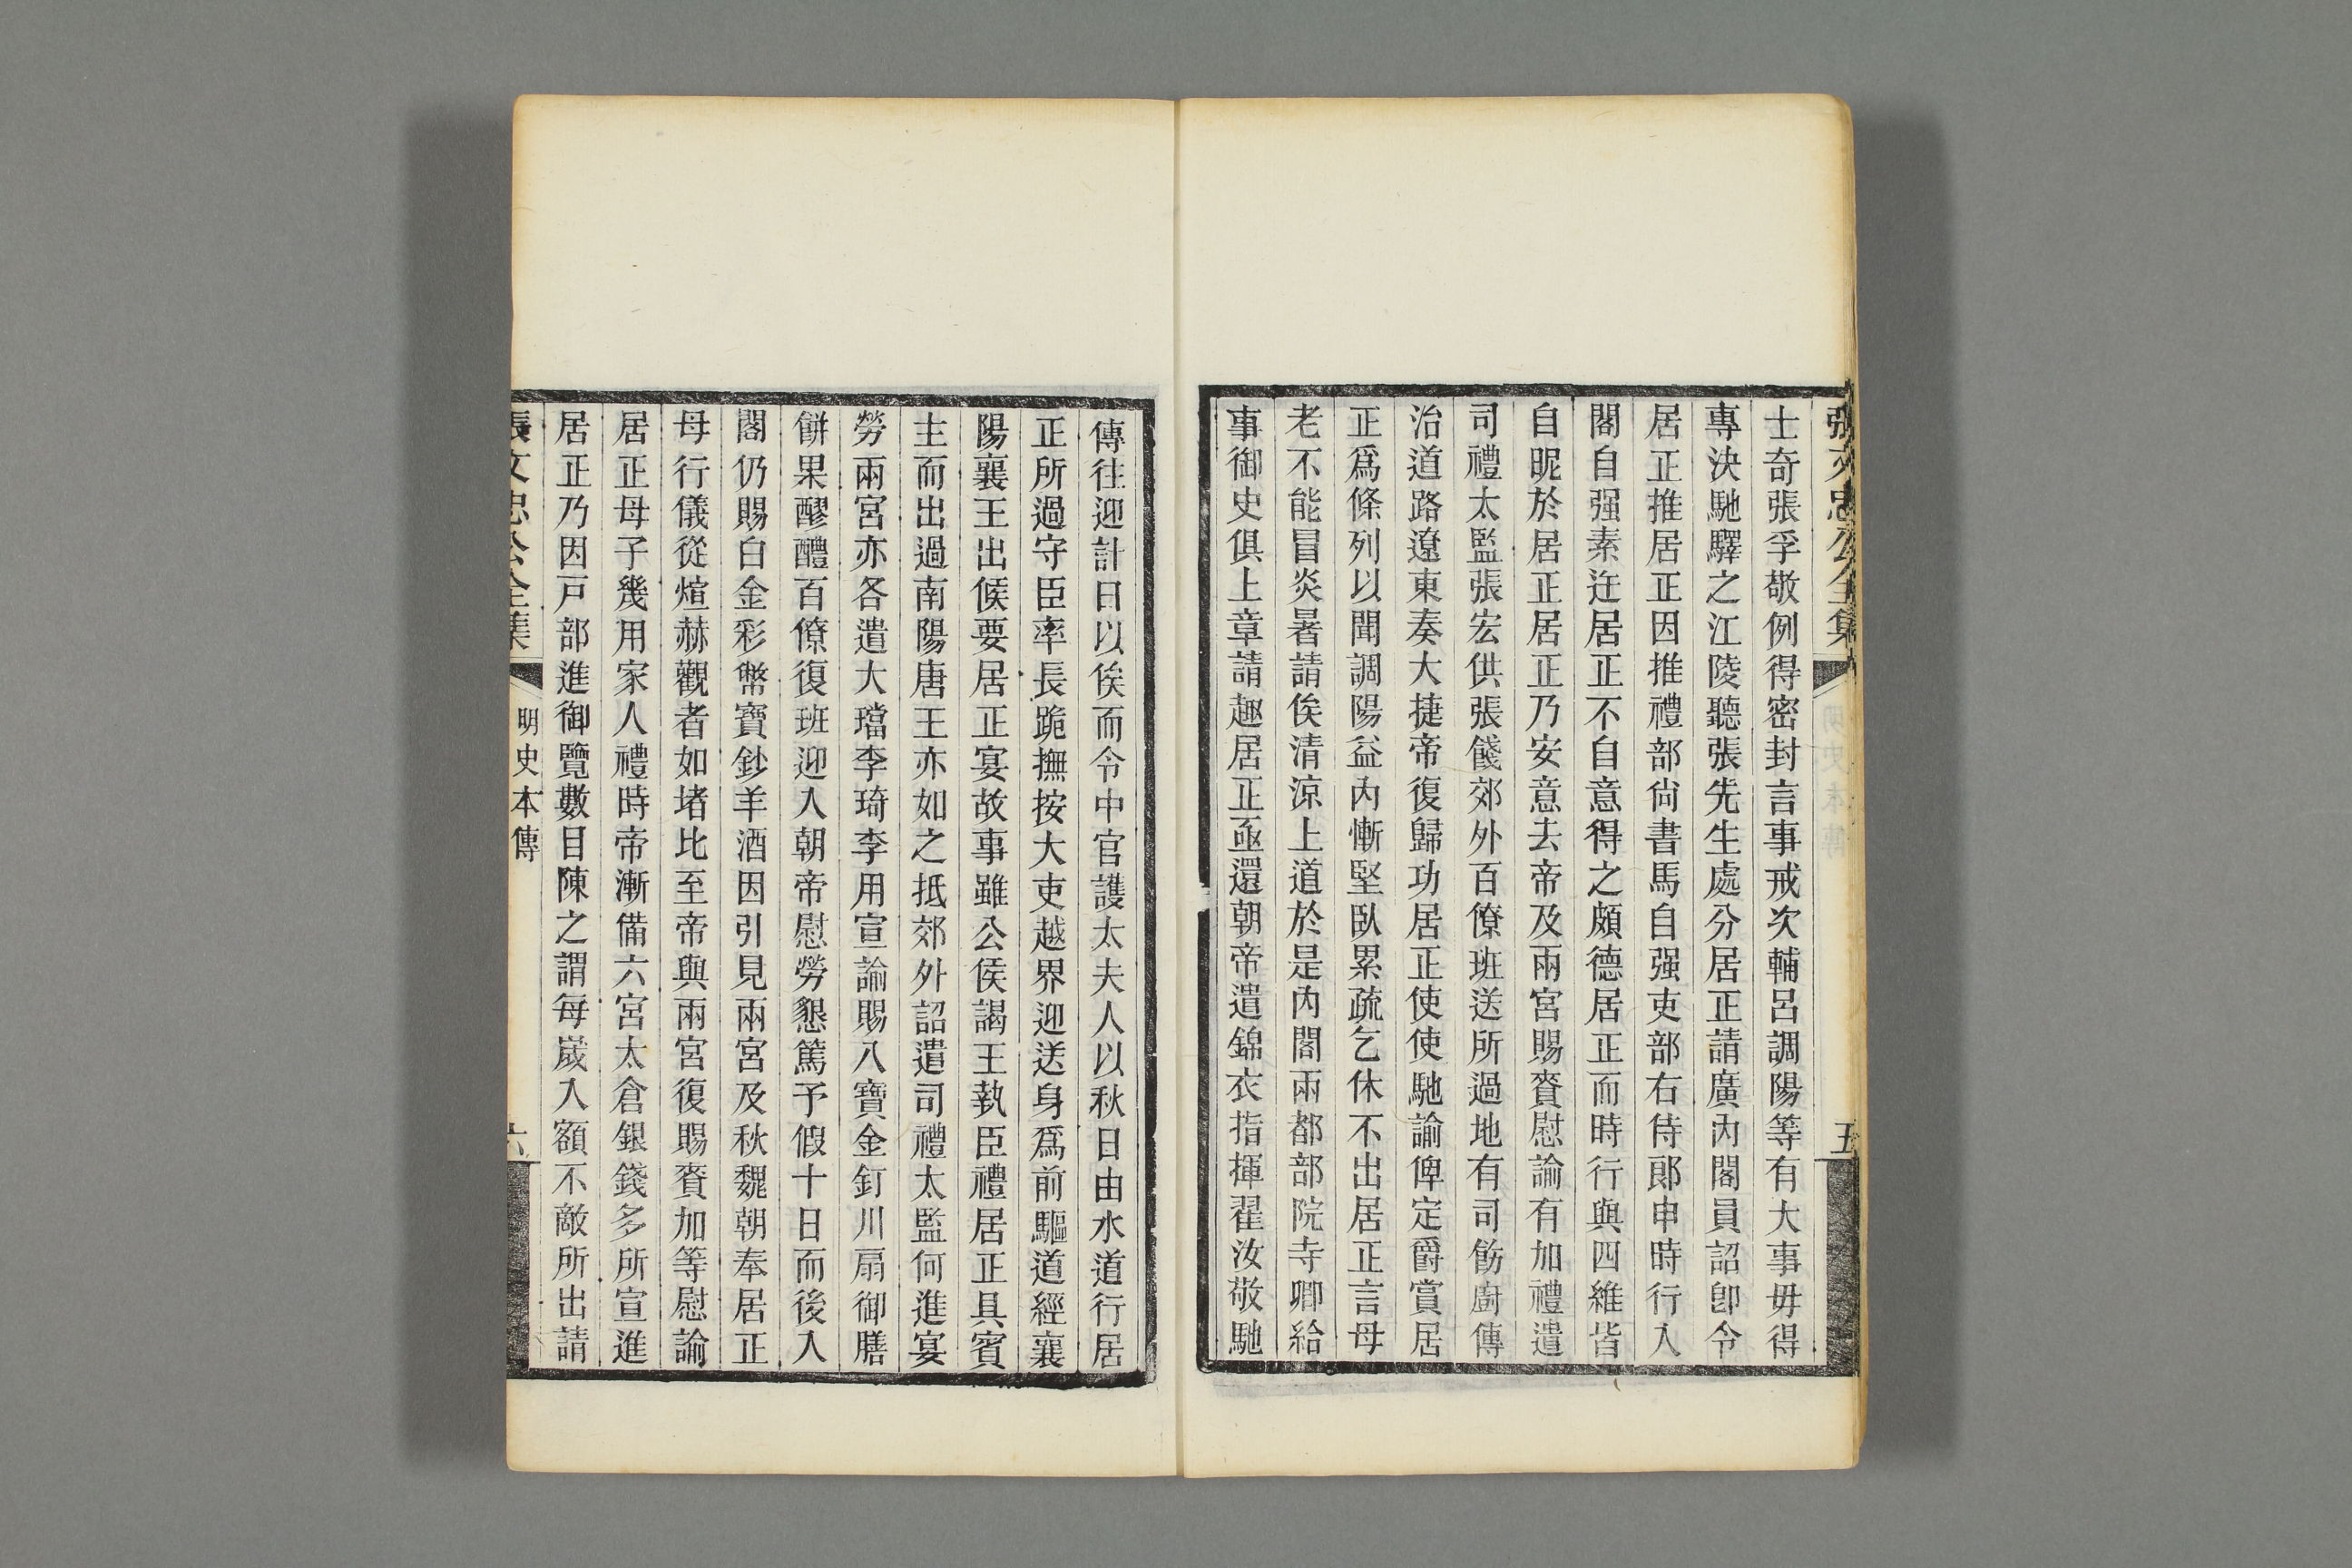 張文忠公全集
五
士奇張孚敬例得密封言事戒次輔呂調陽等有大事毋得
專決馳驛之江陵聽張先生處分居正請廣內閣員詔卽令
居正推居正因推禮部尙書馬自强吏部右侍郞申時行入
閣自强素迕居正不自意得之頗德居正而時行與四維皆
自昵於居正居正乃安意去帝及兩宮賜賚慰諭有加禮遣
司禮太監張宏供張餞郊外百僚班送所過地有司飭廚傳
治道路遼東奏大捷帝復歸功居正使使馳諭俾定爵賞居
正爲條列以聞調陽益內慚堅臥累疏乞休不出居正言母
老不能冒炎暑請俟淸涼上道於是內閣兩都部院寺卿給
事御史俱上章請趣居正亟還朝帝遣錦衣指揮翟汝敬馳
傳往迎計日以俟而令中官護太夫人以秋日由水道行居
正所過守臣率長跪撫按大吏越界迎送身爲前驅道經襄
陽襄王出候要居正宴故事雖公侯謁王執臣禮居正具賓
主而出過南陽唐王亦如之抵郊外詔遣司禮太監何進宴
勞兩宮亦各遣大璫李琦李用宣諭賜八寶金釘川扇御膳
餅果醪醴百僚復班迎入朝帝慰勞懇篤予假十日而後入
閣仍賜白金彩幣寶鈔羊酒因引見兩宮及秋魏朝奉居正
母行儀從煊赫觀者如堵比至帝與兩宮復賜賚加等慰諭
居正母子幾用家人禮時帝漸備六宮太倉銀錢多所宣進
居正乃因戶部進御覽數目陳之謂每歲入額不敵所出請
張文忠公全集
明史本傳
六